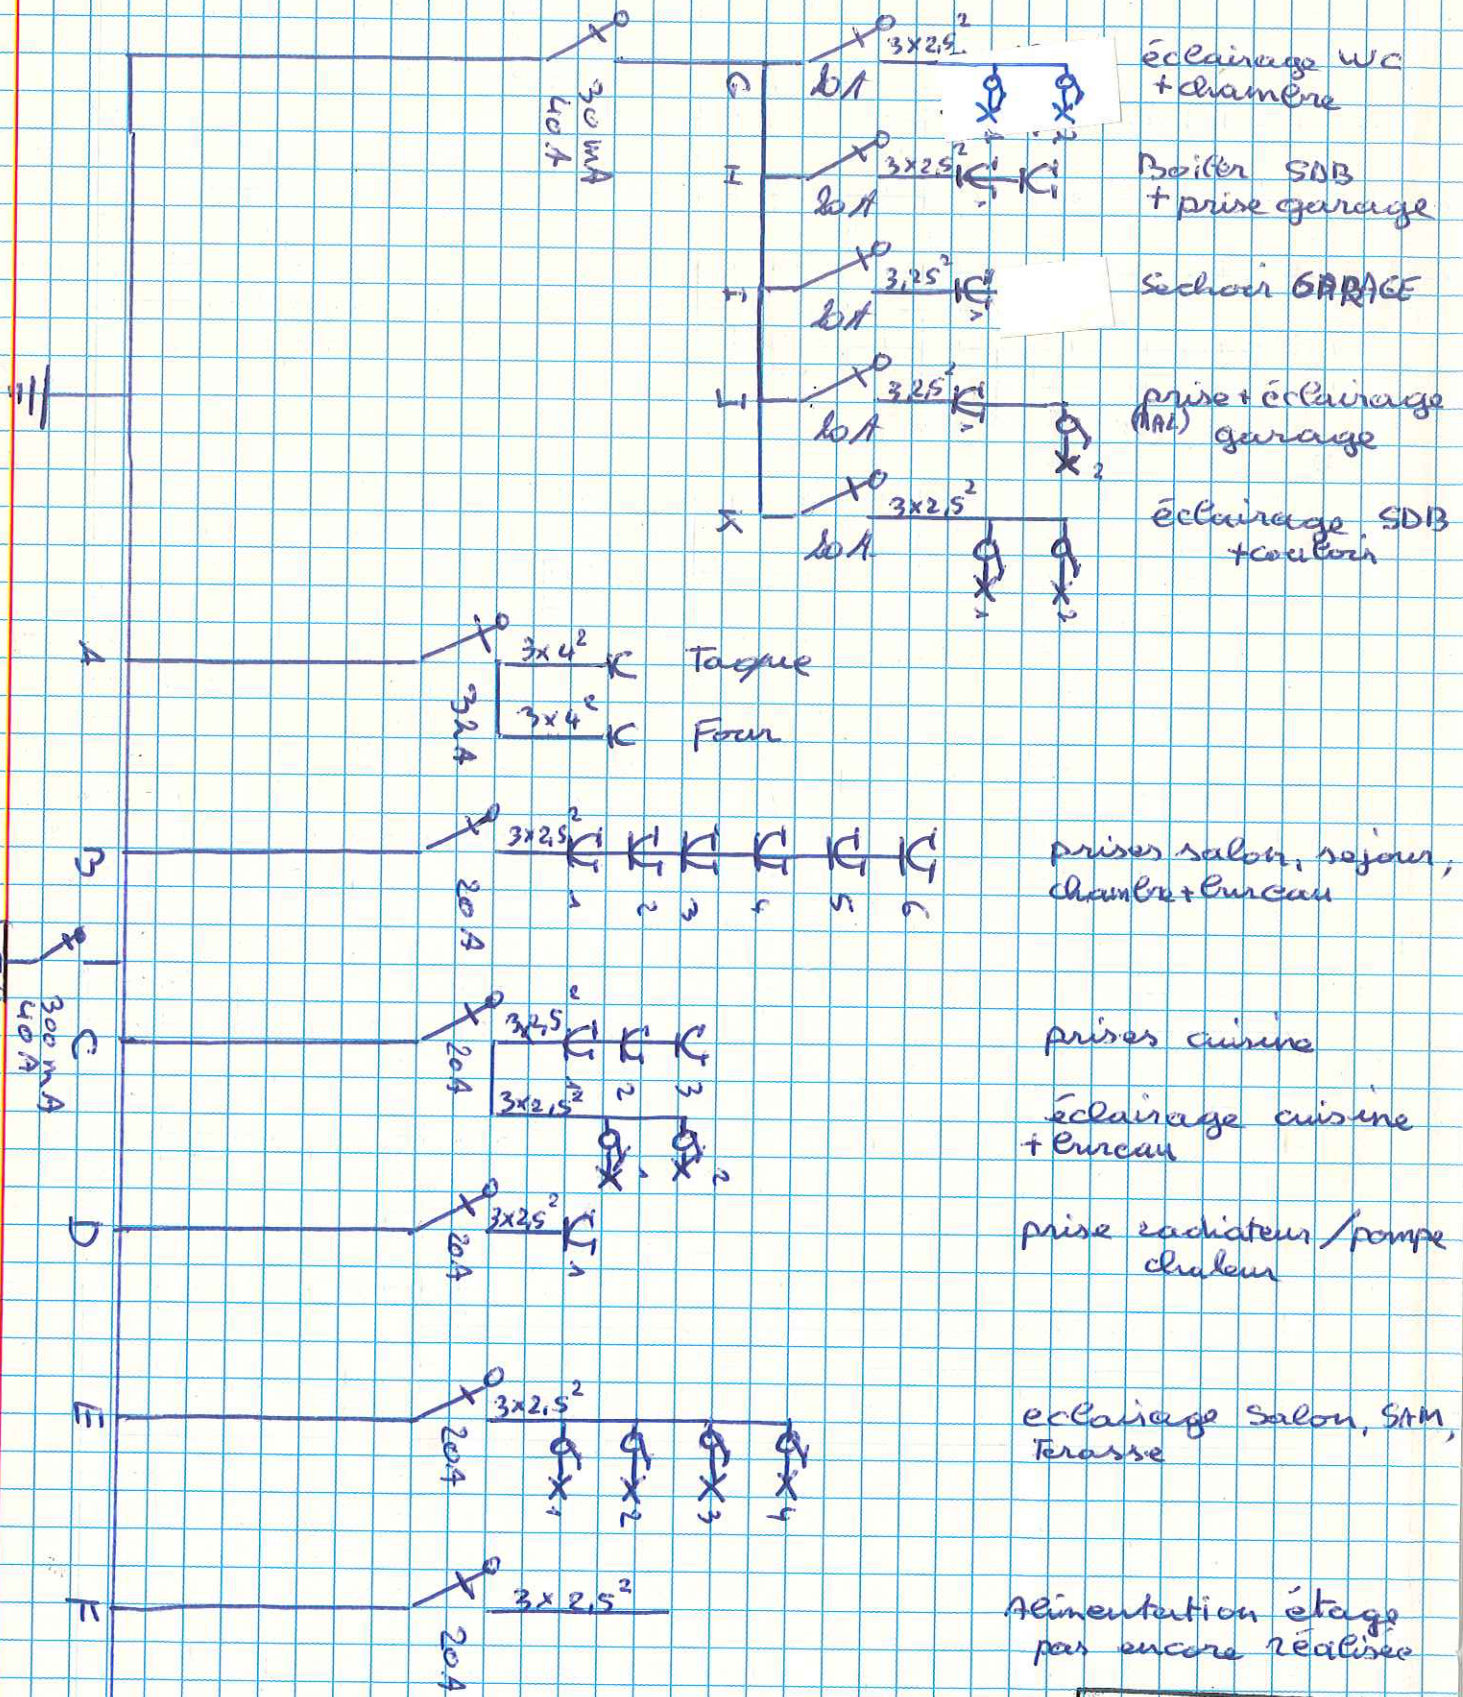 30 mA
40 A
G
20A
3x2,5²
1
2
éclairage WC
+ chambre
H
20A
3x2,5²
1
Boiler SDB
+ prise garage
I
20A
3,25²
1
Sechoir GARAGE
J
20A
3,2,5²
1
2
prise + éclairage
garage
K
20A
3x2,5²
1
2
éclairage SDB
+ couloir
A
32A
3x4²
Taque
3x4²
Four
B
20A
3x2,5²
1
2
3
4
5
6
prises salon, sejour,
chambre + bureau
300 mA
40 A
C
20A
3x2,5²
1
2
3
prises cuisine
3x2,5²
1
2
éclairage cuisine
+ bureau
D
20A
3x2,5²
1
prise radiateur / pompe
chaleur
E
20A
3x2,5²
1
2
3
4
eclairage Salon, SAM,
Terasse
F
20A
3x2,5²
Alimentation étage
pas encore réalisée